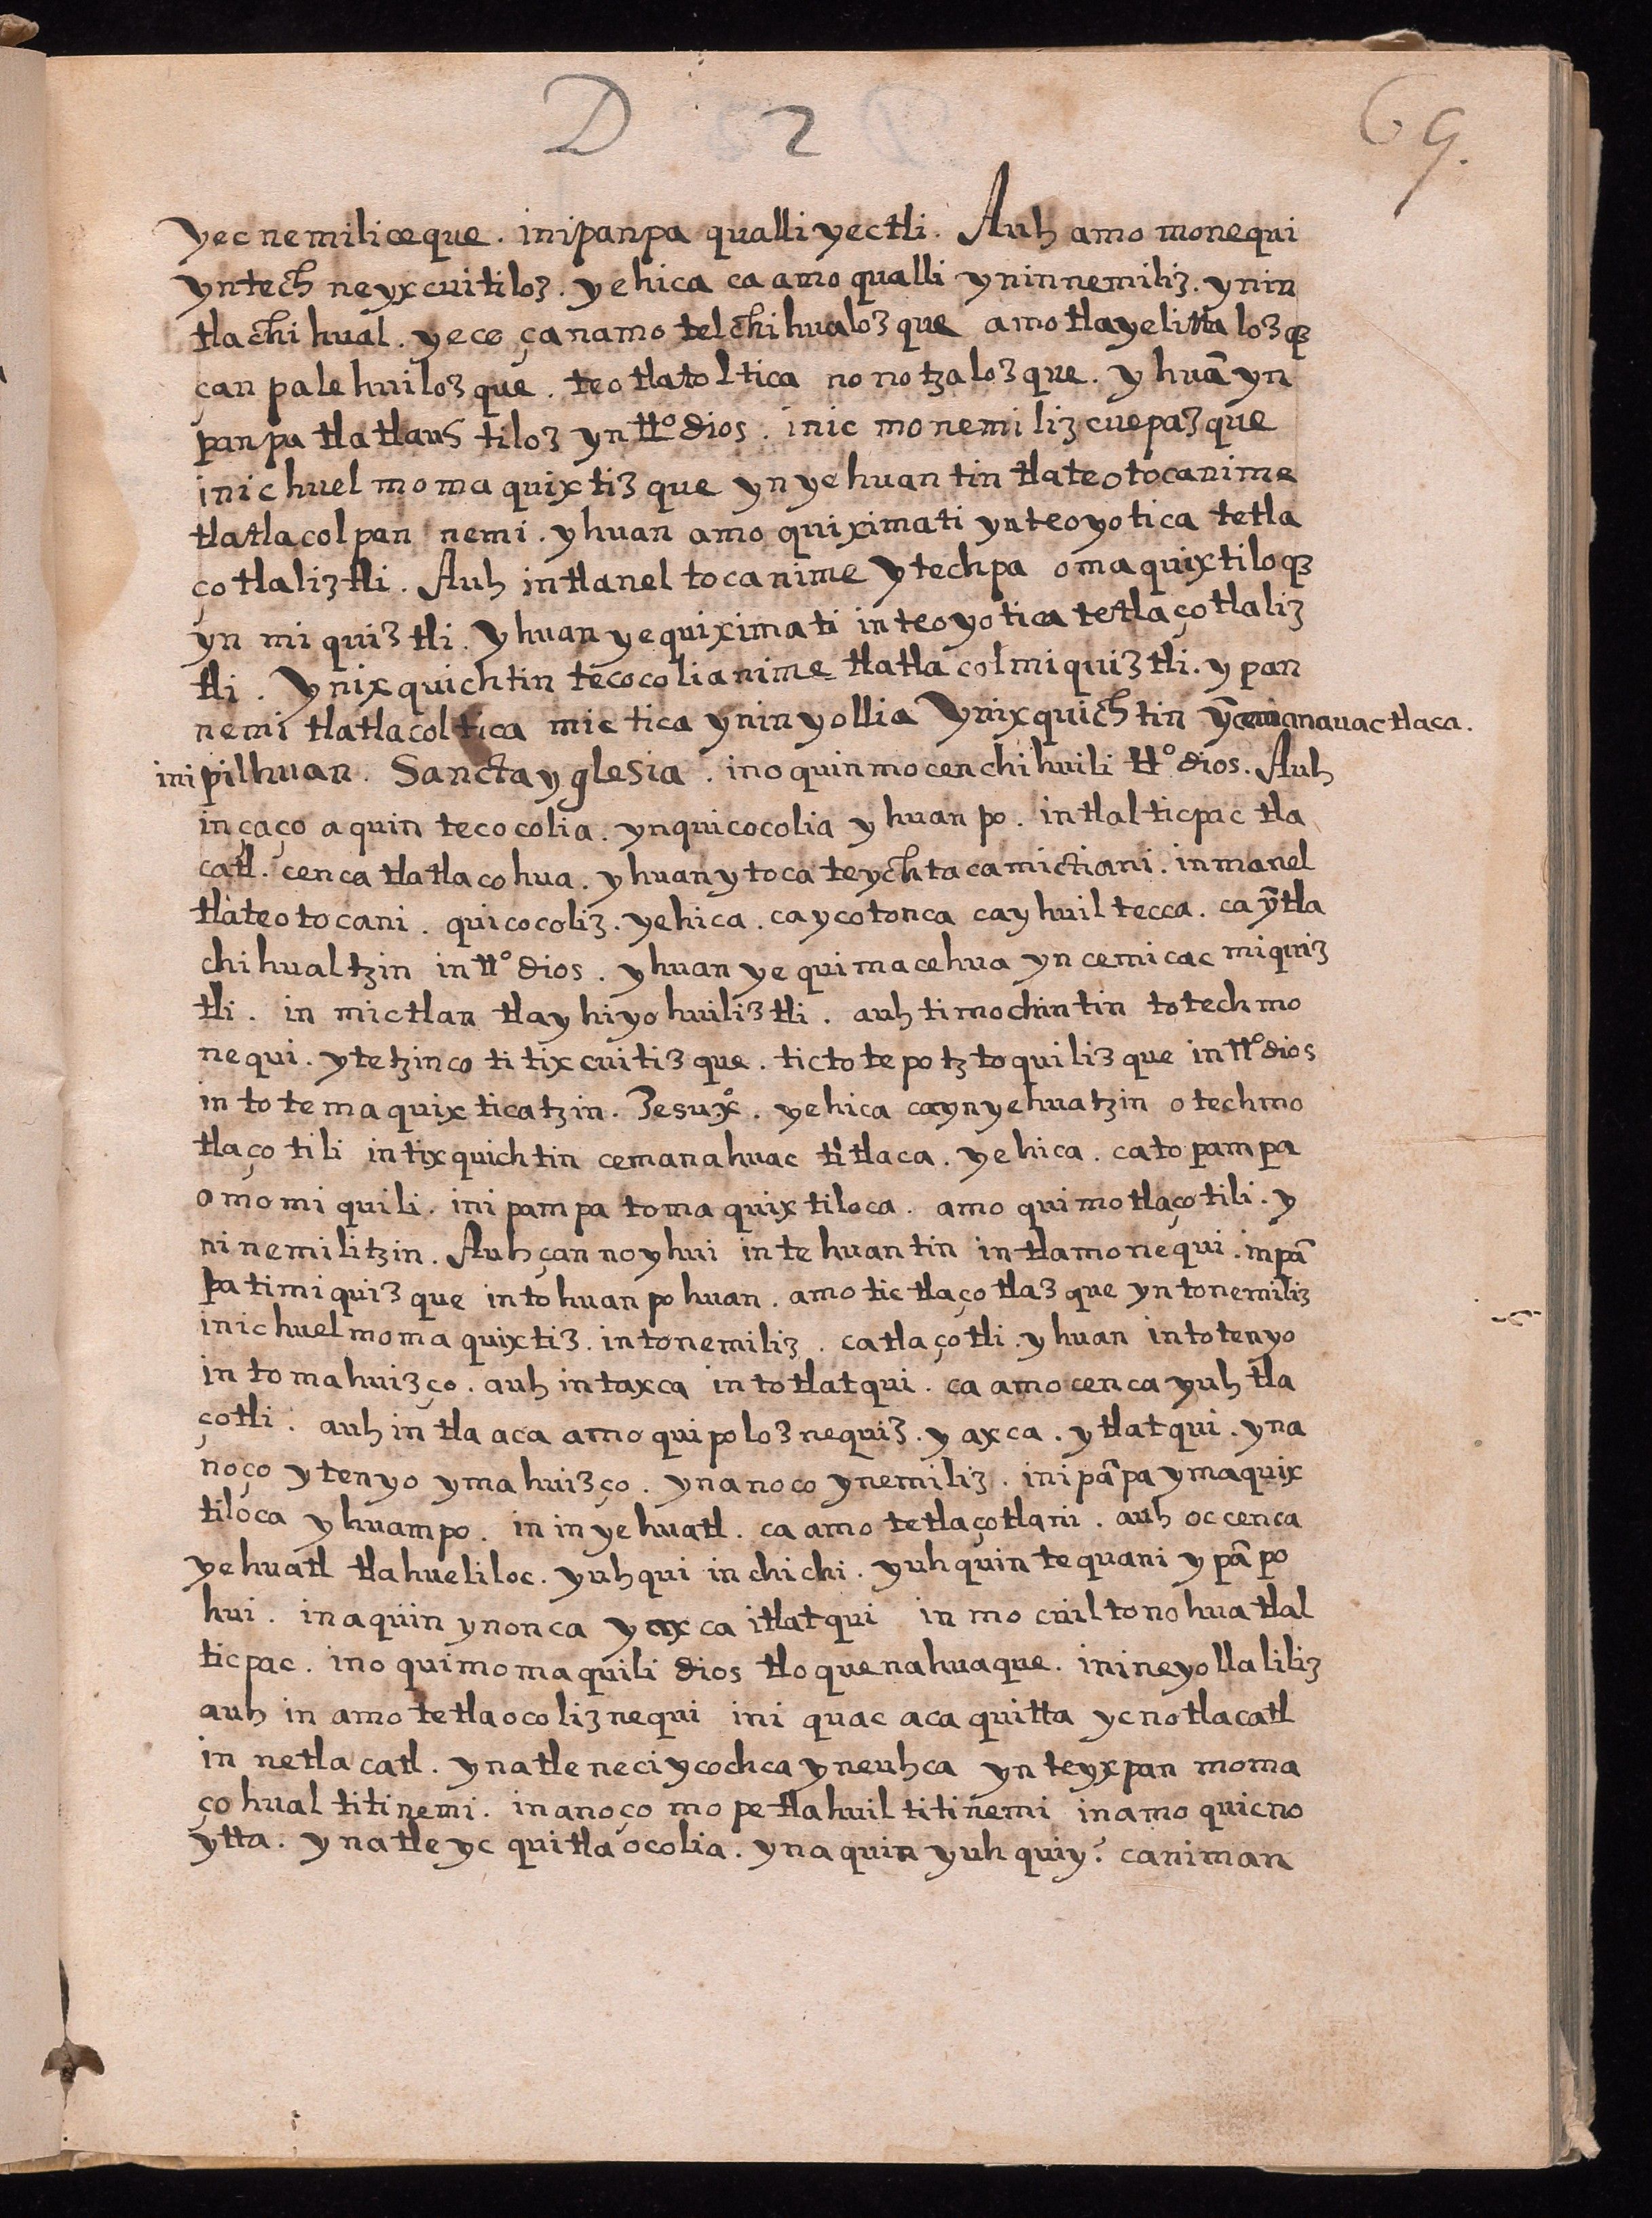 D 2 69.
yecnemiliceque. inipanpa qualli yectli. Auh amo monequi
yntech neyxcuitiloz. yehica ca amo qualli ynin nemiliz. ynin
tlachihual. yece çan amo telchihualozque amo tlayelittalozq̃
çan palehuilozque. teotlatoltica nonotzalozque. yhuã yn
panpa tlatlauhtiloz yn tt.º dios. inic monemilizcuepazque
inic huel momaquixtizque yn yehuantin tlateotocanime
tlatlacolpan nemi. yhuan amo quiximati yn teoyotica tetla
çotlaliztli. Auh in tlaneltocanime ytechpa omaquixtiloq̃
yn miquiztli. yhuan ye quiximati in teoyotica tetlaçotlaliz
tli. Ynixquichtin tecocolianime tlatlacolmiquiztli. ypan
nemi tlatlacoltica mictica ynin yollia Ynixquichtin ỹ cemanauactlaca.
inipilhuan. Sancta yglesia. in oquinmocenchihuili tt.º dios. Auh
in çaço aquin tecocolia. yn quicocolia yhuanpo. in tlalticpac tla
catl. cenca tlatlacohua. yhuan ytoca teychtacamictiani. in manel
tlateotocani. quicocoliz. yehica. ca ycotonca ca yhuiltecca. ca ỹtla
chihualtzin in tt.º dios. yhuan ye quimacehua yn cemicac miquiz
tli. in mictlan tlayhiyohuiliztli. auh timochintin totech mo
nequi. ytetzinco titixcuitizque. tictotepotztoquilizque in tt.º dios
in totemaquixticatzin. Jesu xº. yehica ca yn yehuatzin otechmo
tlaçotili in tixquichtin cemanahuac titlaca. yehica. ca topampa
omomiquili. inipampa tomaquixtiloca. amo quimotlaçotili. y
ninemilitzin. Auh çan no yhui in tehuantin intla monequi. inpã
pa timiquizque in tohuanpohuan. amo tictlaçotlazque yn tonemiliz
inic huel momaquixtiz. in tonemiliz. ca tlaçotli. yhuan in totenyo
in tomahuizço. auh in taxca in totlatqui. ca amo cenca yuh tla
çotli. auh intla aca amo quipoloznequiz. yaxca. ytlatqui. yna
noço ytenyo ymahuizço. ynanoco ynemiliz. inipãpa ymaquix
tiloca yhuampo. in in yehuatl. ca amo tetlaçotlani. auh occenca
yehuatl tlahueliloc. yuhqui in chichi. yuhquin tequani ypã po
hui. in aquin yn onca yaxca itlatqui in mocuiltonohua tlal
ticpac. in oquimomaquili dios tloque nahuaque. inineyollaliliz
auh in amo tetlaocoliznequi iniquac aca quitta ycnotlacatl
in netlacatl. yn atle neci ycochca yneuhca yn teyxpan moma
çohualtitinemi. in anoço mopetlahuiltitinemi in amo quicno
ytta. yn atle yc quitlaocolia. yn aquin yuhqui y? ca niman